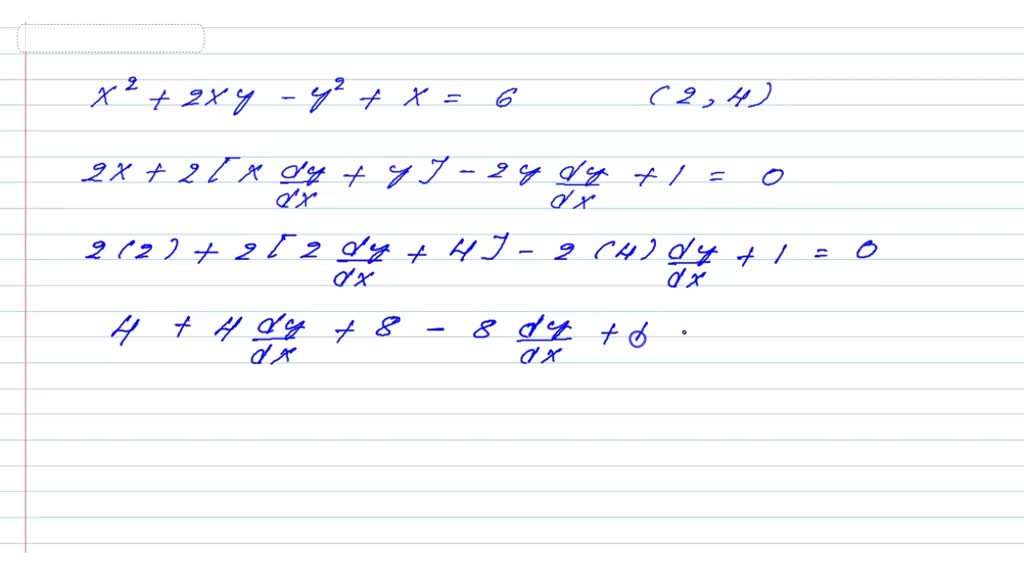 x² + 2xy - y² + x = 6 (2, 4)
2x + 2[x dy/dx + y] - 2y dy/dx + 1 = 0
2(2) + 2[2 dy/dx + 4] - 2(4) dy/dx + 1 = 0
4 + 4 dy/dx + 8 - 8 dy/dx +